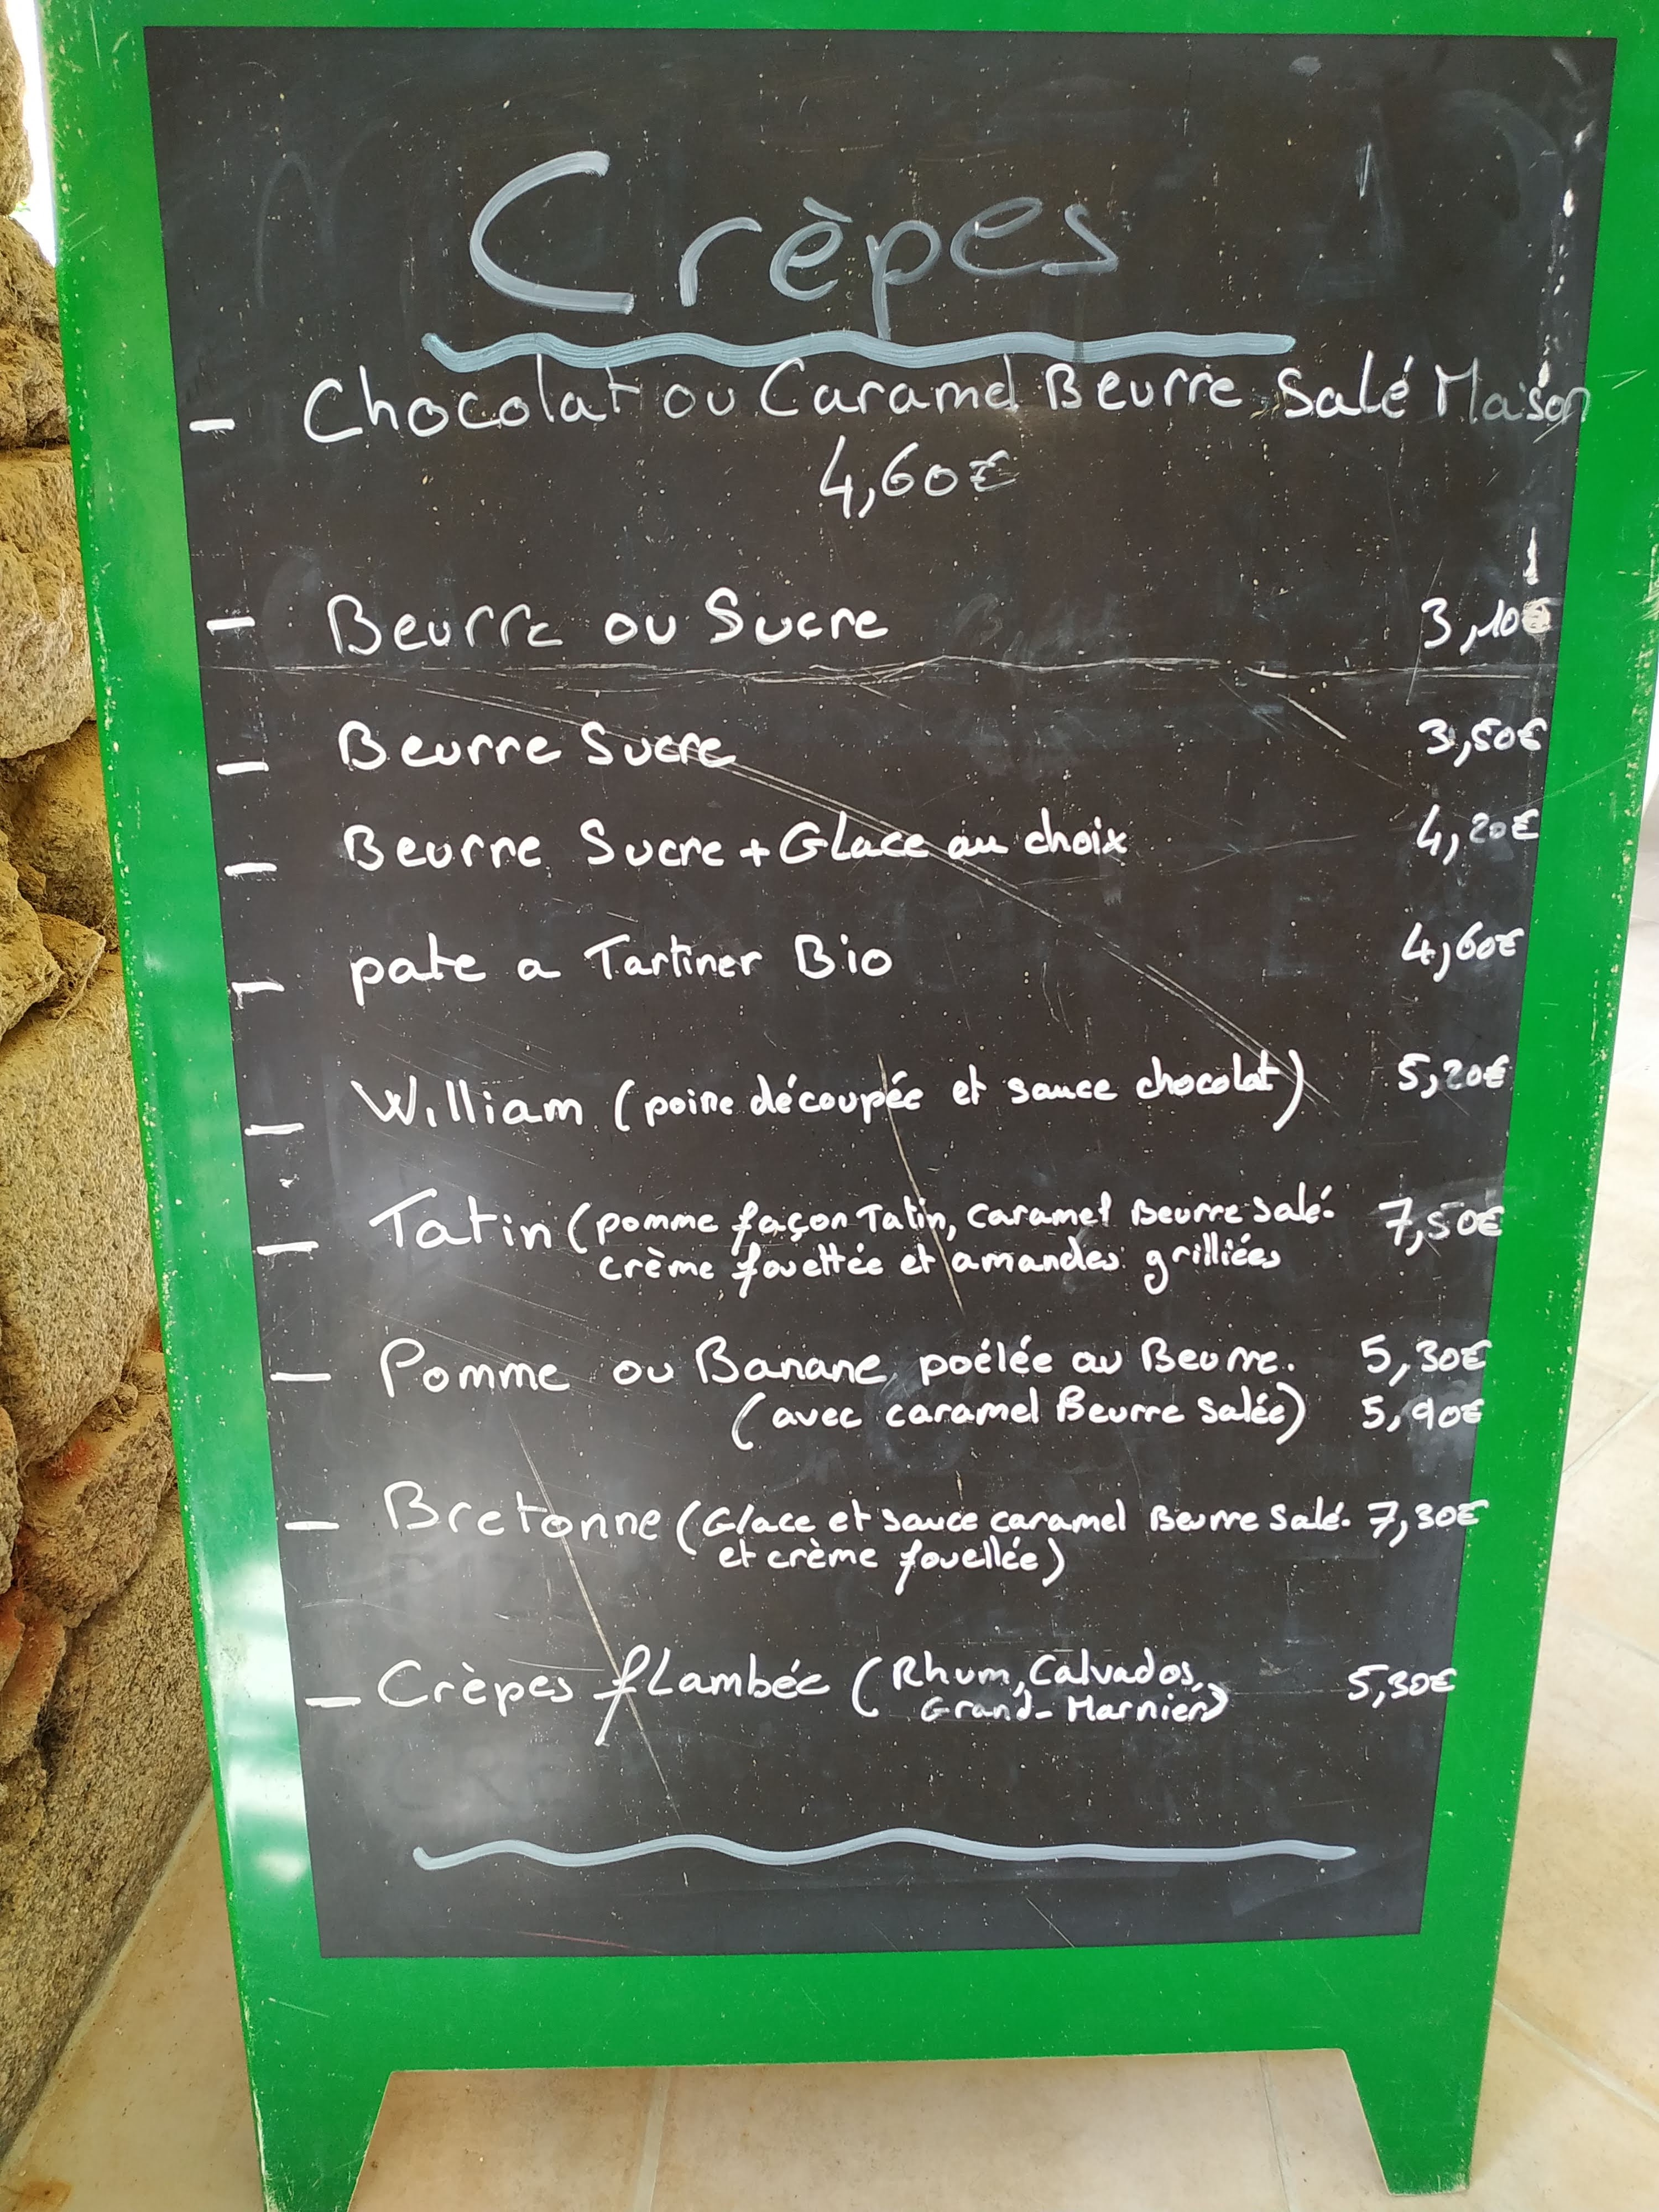 Crèpes
- Chocolat ou Caramel Beurre Salé Maison
4,60€
- Beurre ou Sucre 3,10€
- Beurre Sucre 3,50€
- Beurre Sucre + Glace au choix 4,20€
- pate a Tartiner Bio 4,60€
- William (poire découpée et sauce chocolat) 5,20€
- Tatin (pomme façon Tatin, caramel Beurre Salé. 7,50€
crème fouettée et amandes grilliées
- Pomme ou Banane poêlée au Beurre. 5,30€
(avec caramel Beurre salée) 5,90€
- Bretonne (Glace et sauce caramel Beurre Salé. 7,30€
et crème fouellée)
- Crèpes flambée (Rhum, Calvados, 5,30€
Grand-Marnier)